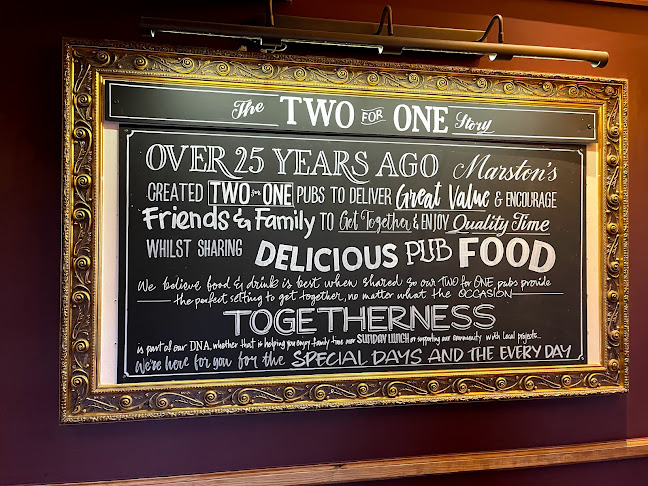 The TWO FOR ONE Story
OVER 25 YEARS AGO Marston's
CREATED TWO for ONE PUBS TO DELIVER Great Value & ENCOURAGE
Friends & Family TO Get Together & ENJOY Quality Time
WHILST SHARING DELICIOUS PUB FOOD
We believe food & drink is best when shared so our TWO for ONE pubs provide
the perfect setting to get together, no matter what the OCCASION
TOGETHERNESS
is part of our DNA, whether that is helping you enjoy family time over SUNDAY LUNCH or supporting our community with local projects...
We're here for you for the SPECIAL DAYS AND THE EVERY DAY